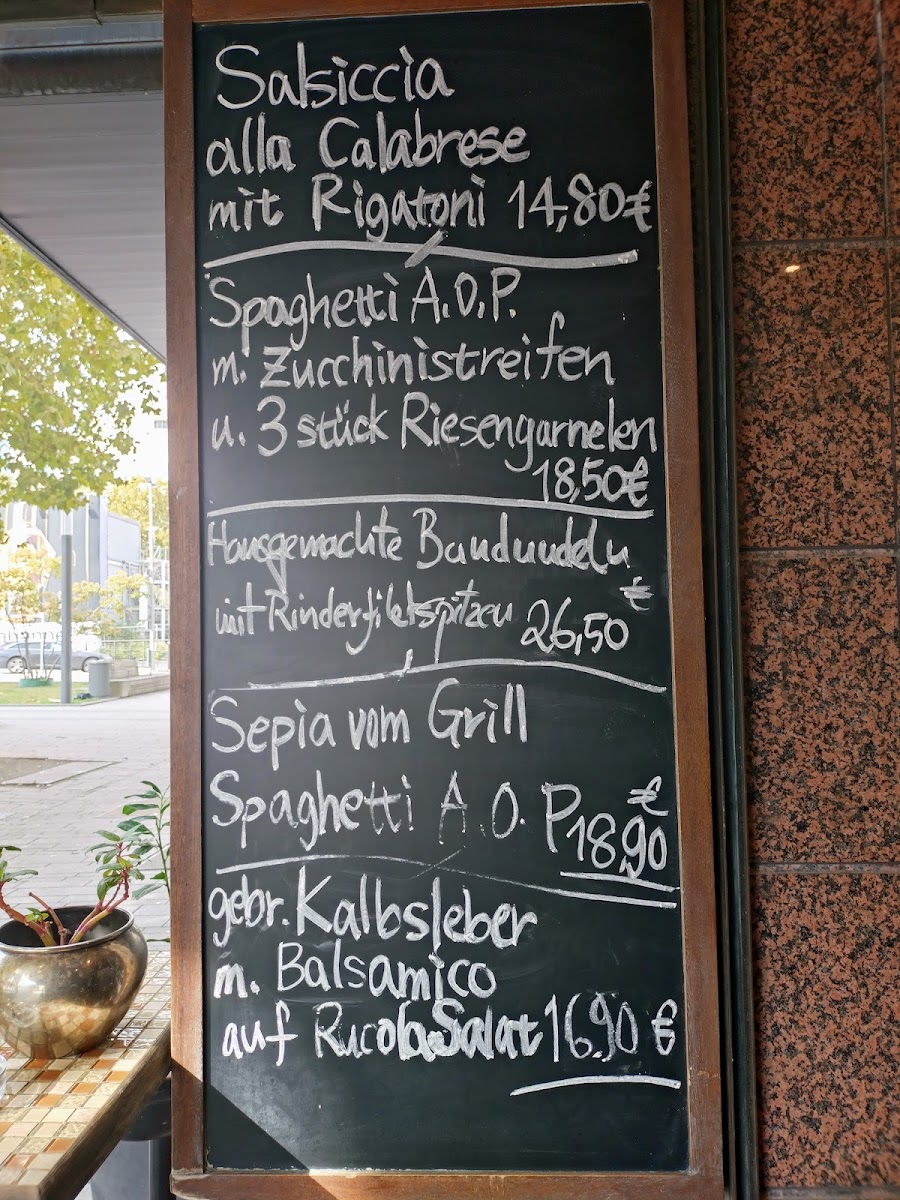 Salsiccia
alla Calabrese
mit Rigatoni 14,80€
Spaghetti A.O.P.
m. Zucchinistreifen
u. 3 stück Riesengarnelen
18,50€
Hausgemachte Bandnudeln
mit Rinderfiletspitzen 26,50 €
Sepia vom Grill
Spaghetti A.O.P 18,90 €
gebr. Kalbsleber
m. Balsamico
auf Rucola Salat 16.90 €